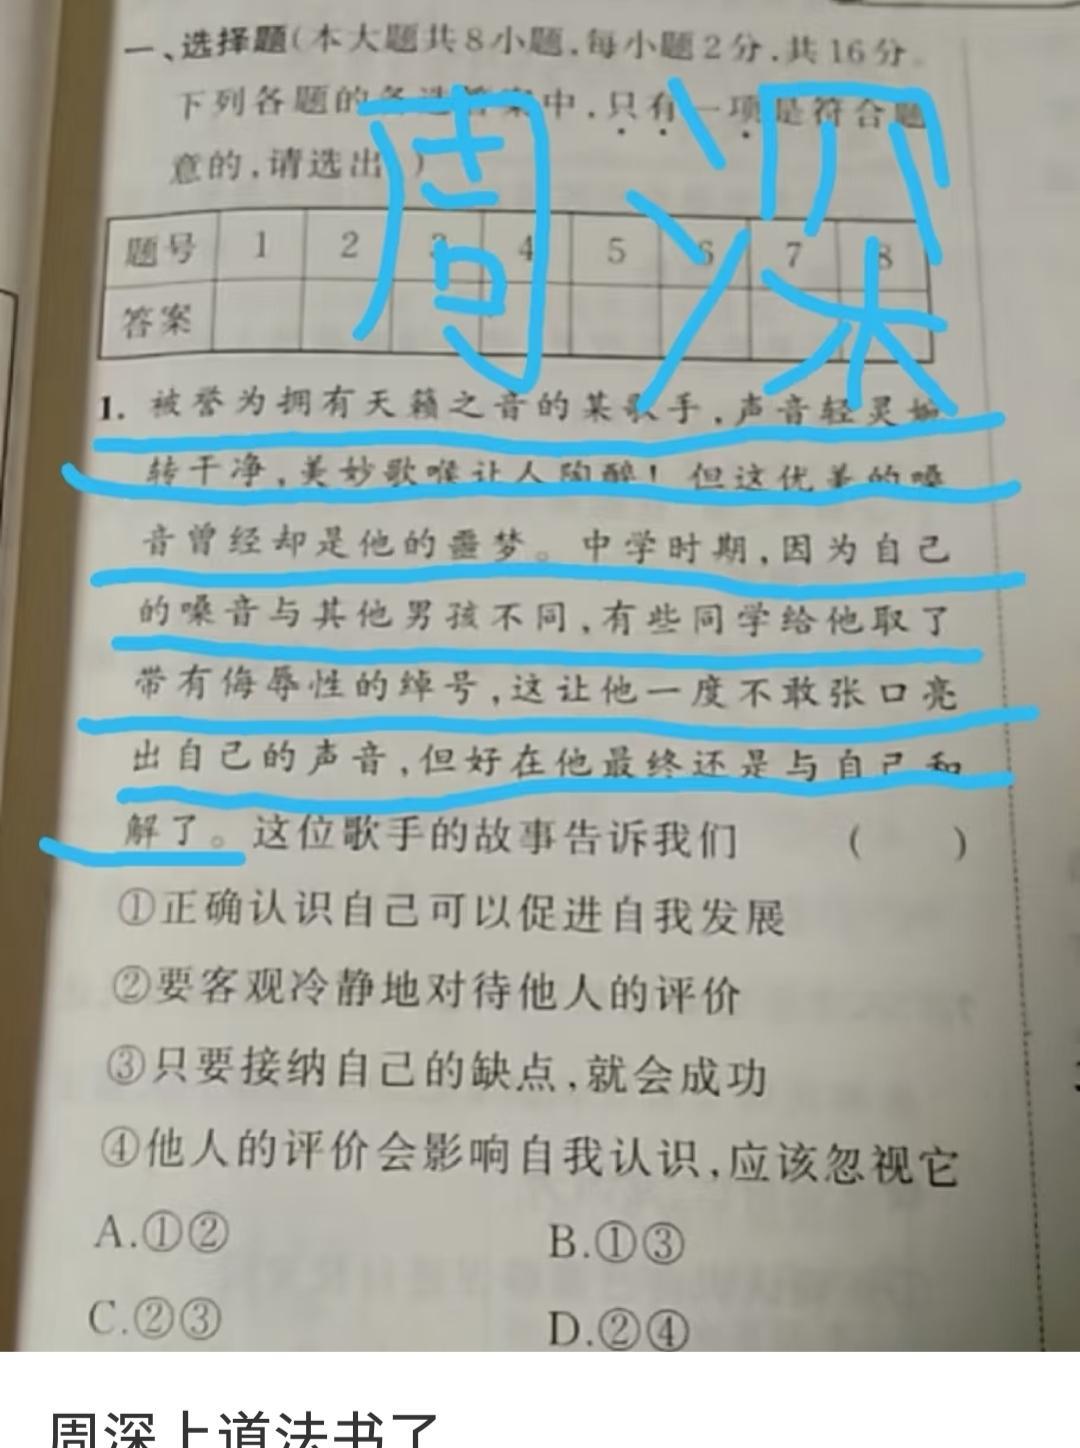 一、选择题(本大题共8小题,每小题2分,共16分。
下列各题的备选答案中,只有一项是符合题
意的,请选出)
周深
题号 1 2 3 4 5 6 7 8
答案
1. 被誉为拥有天籁之音的某歌手,声音轻灵婉
转干净,美妙歌喉让人陶醉!但这优美的嗓
音曾经却是他的噩梦。中学时期,因为自己
的嗓音与其他男孩不同,有些同学给他取了
带有侮辱性的绰号,这让他一度不敢张口亮
出自己的声音,但好在他最终还是与自己和
解了。这位歌手的故事告诉我们 ( )
①正确认识自己可以促进自我发展
②要客观冷静地对待他人的评价
③只要接纳自己的缺点,就会成功
④他人的评价会影响自我认识,应该忽视它
A.①② B.①③
C.②③ D.②④
周深上道法书了